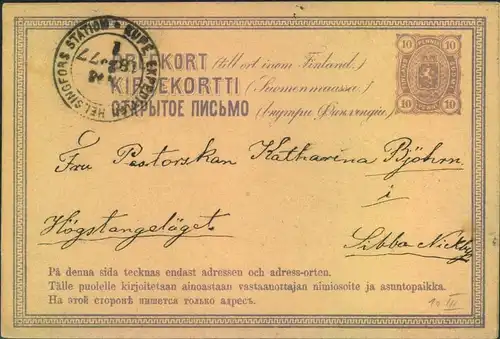 HELSINGFORS STATION * KUPÉ EXPED.
18 77
BREFKORT (till ort inom Finland.)
KIRJEKORTTI (Suomenmaassa.)
ОТКРЫТОЕ ПИСЬМО (внутри Финляндіи)
10 10
10 10
Fru Pastorskan Katharina Björn
i
Högstangeläget Sibbo Nickby
På denna sida tecknas endast adressen och adress-orten.
Tälle puolelle kirjoitetaan ainoastaan vastaanottajan nimiosoite ja asuntopaikka.
На этой сторонѣ пишется только адресъ.
10 III